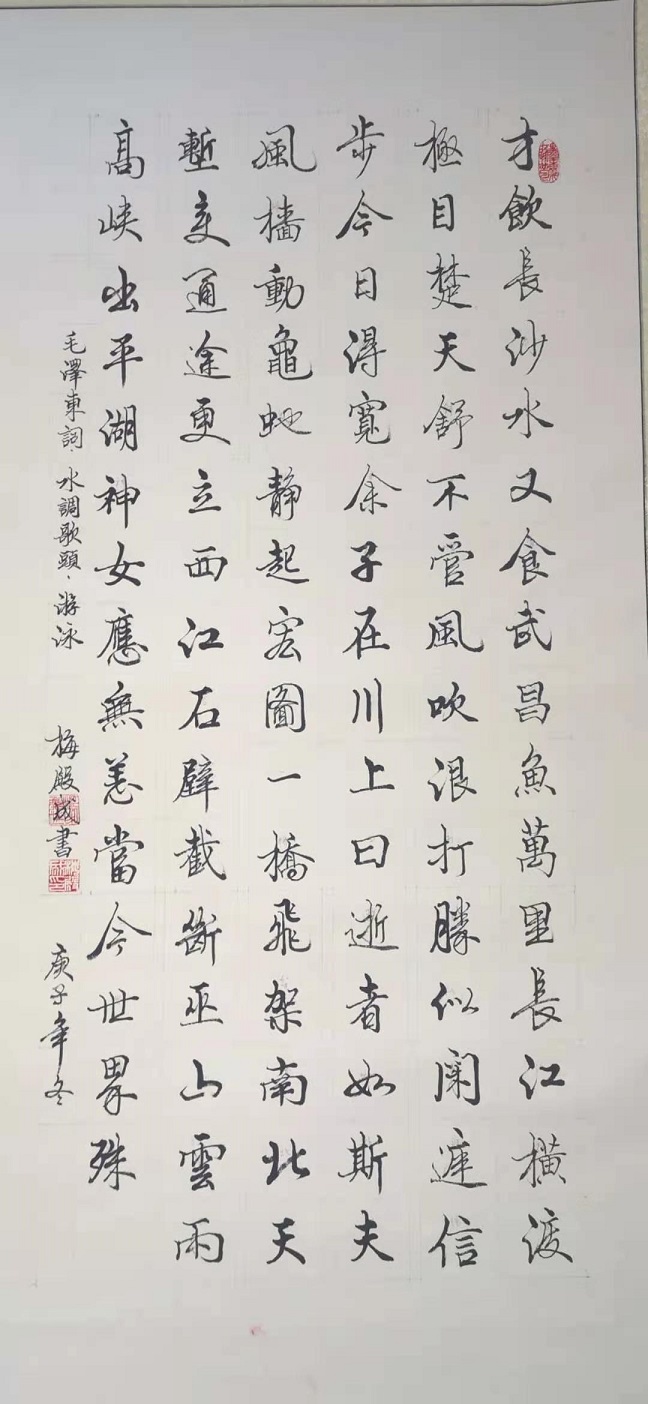 才飲長沙水又食武昌魚萬里長江橫渡
極目楚天舒不管風吹浪打勝似閑庭信
步今日得寬余子在川上曰逝者如斯夫
風檣動龜蛇静起宏圖一橋飛架南北天
塹变通途更立西江石壁截斷巫山雲雨
高峡出平湖神女應無恙當今世界殊
毛澤東詞·水調歌頭·游泳
梅殿成書
庚子年冬